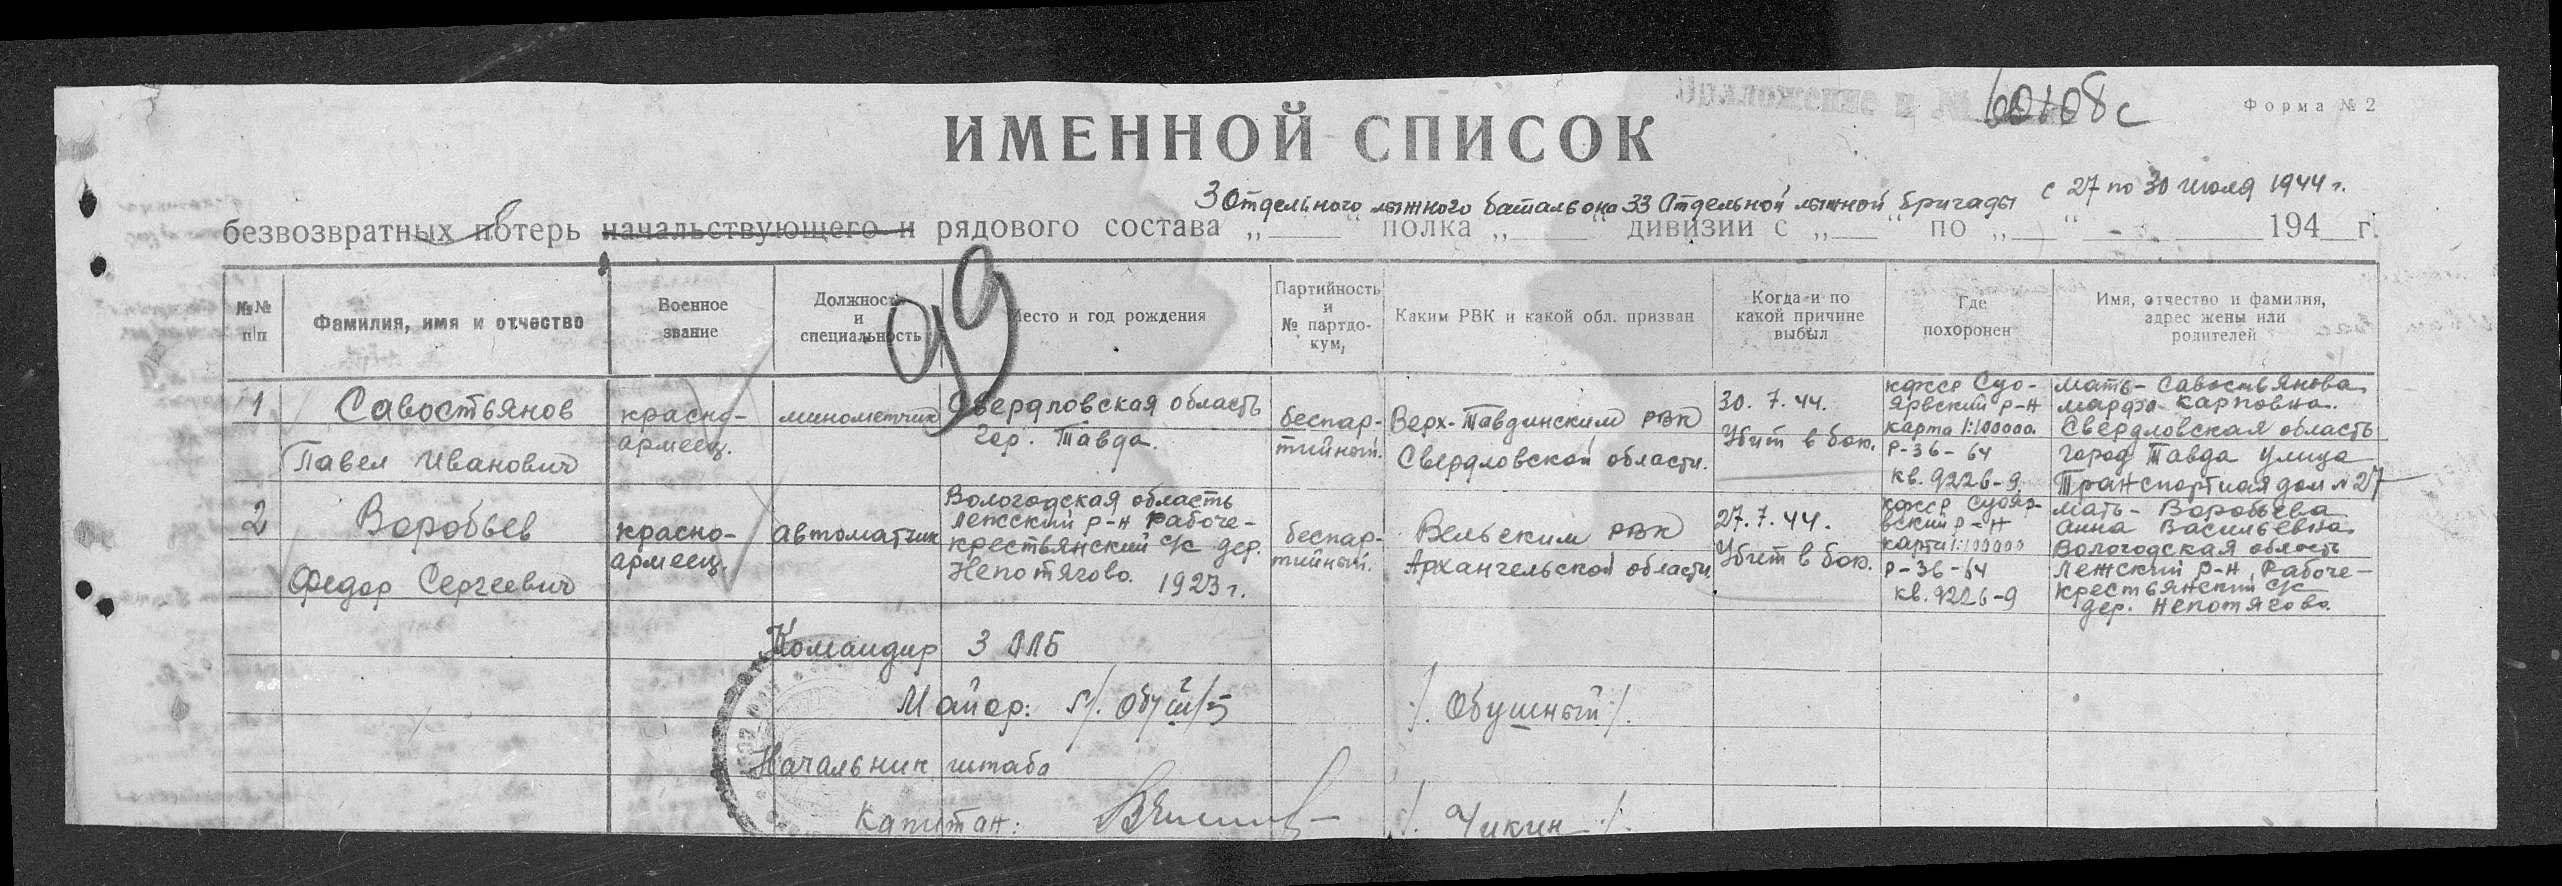 Приложение к № 60108с
Форма № 2
ИМЕННОЙ СПИСОК
3 Отдельного лыжного батальона 33 Отдельной лыжной бригады с 27 по 30 июля 1944 г.
безвозвратных потерь начальствующего и рядового состава „ “ полка „ “ дивизии с „ “ по „ “ 194 г.
99
№№ п/п
Фамилия, имя и отчество
Военное звание
Должность и специальность
Место и год рождения
Партийность и № партдокум,
Каким РВК и какой обл. призван
Когда и по какой причине выбыл
Где похоронен
Имя, отчество и фамилия, адрес жены или родителей
1
Савостьянов
Павел Иванович
красно-
армеец.
минометчик
Свердловская область
гор. Тавда.
беспар-
тийный.
Верх-Тавдинским РВК
Свердловской области.
30. 7. 44.
Убит в бою.
кфсср Суо-
ярвский р-н
карта 1:100000
Р-36-64
кв. 9226-9
мать- Савостьянова
марфа карповна.
Свердловская область
город Тавда улица
Транспортная дом № 27
2
Воробьев
Федор Сергеевич
красно-
армеец.
автоматчик
Вологодская область
Лежский р-н Рабоче-
крестьянский с/с дер.
Непотягово. 1923 г.
беспар-
тийный.
Вельским РВК
Архангельской области.
27. 7. 44.
Убит в бою.
кфсср Суояр-
вский р-н
карта 1:100000
Р-36-64
кв. 9226-9
мать- Воробьева
анна Васильевна
Вологодская область
Лежский р-н, Рабоче-
крестьянский с/с
дер. Непотягово.
Командир 3 ОЛБ
Майор: /. Обушный /.
Начальник штаба
Капитан: /. Чикин /.